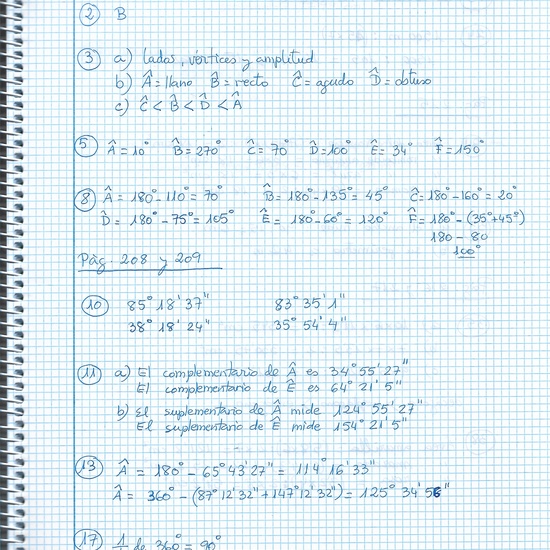 2 B
3 a) lados, vértices y amplitud
b) Â = llano B̂ = recto Ĉ = agudo D̂ = obtuso
c) Ĉ < B̂ < D̂ < Â
5 Â = 10° B̂ = 270° Ĉ = 70° D̂ = 100° Ê = 34° F̂ = 150°
8 Â = 180° - 110° = 70° B̂ = 180° - 135° = 45° Ĉ = 180° - 160° = 20°
D̂ = 180° - 75° = 105° Ê = 180° - 60° = 120° F̂ = 180° - (35° + 45°)
180 - 80
100°
Pág. 208 y 209
10 85° 18' 37" 83° 35' 1"
38° 18' 24" 35° 54' 4"
11 a) El complementario de Â es 34° 55' 27"
El complementario de Ê es 64° 21' 5"
b) El suplementario de Â mide 124° 55' 27"
El suplementario de Ê mide 154° 21' 5"
13 Â = 180° - 65° 43' 27" = 114° 16' 33"
Â = 360° - (87° 12' 32" + 147° 12' 32") = 125° 34' 56"
17 1 de 360° = 90°